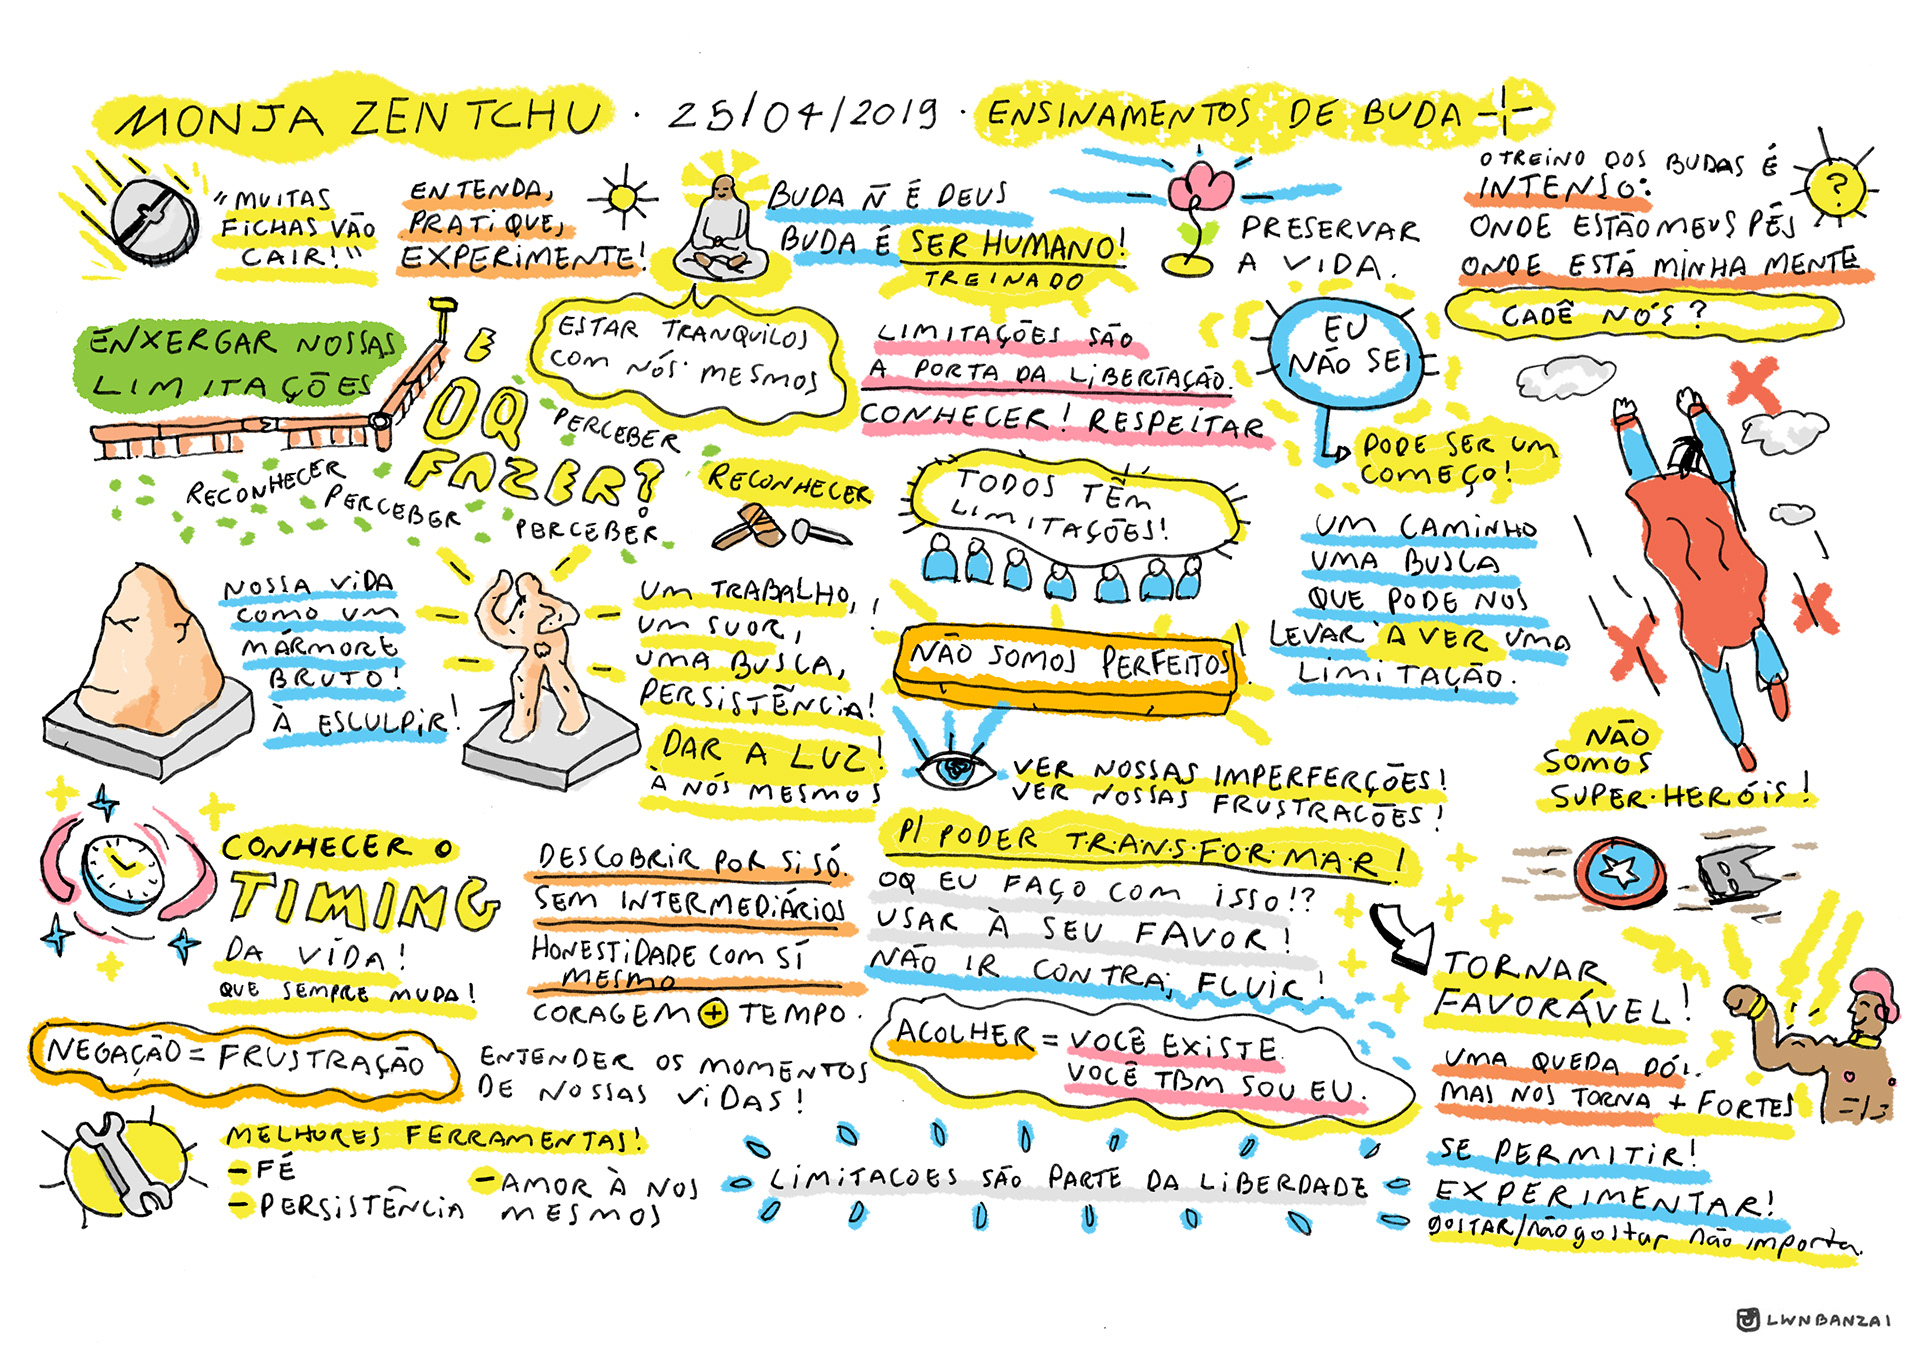 MONJA ZENTCHU · 25/04/2019 · ENSINAMENTOS DE BUDA
"MUITAS
FICHAS VÃO
CAIR!"
ENTENDA,
PRATIQUE,
EXPERIMENTE!
BUDA Ñ É DEUS
BUDA É SER HUMANO!
TREINADO
PRESERVAR
A VIDA.
O TREINO DOS BUDAS É
INTENSO:
ONDE ESTÃO MEUS PÉS
ONDE ESTÁ MINHA MENTE
?
CADÊ NÓS?
ENXERGAR NOSSAS
LIMITAÇÕES
E
OQ
FAZER?
ESTAR TRANQUILOS
COM NÓS MESMOS
LIMITAÇÕES SÃO
A PORTA DA LIBERTAÇÃO.
CONHECER! RESPEITAR
EU
NÃO SEI
PODE SER UM
COMEÇO!
PERCEBER
RECONHECER
PERCEBER
PERCEBER
RECONHECER
TODOS TÊM
LIMITAÇÕES!
UM CAMINHO
UMA BUSCA
QUE PODE NOS
LEVAR A VER UMA
LIMITAÇÃO.
NOSSA VIDA
COMO UM
MÁRMORE
BRUTO!
À ESCULPIR!
UM TRABALHO,
UM SUOR,
UMA BUSCA,
PERSISTÊNCIA!
DAR A LUZ!
À NÓS MESMOS
NÃO SOMOS PERFEITOS!
VER NOSSAS IMPERFERÇÕES!
VER NOSSAS FRUSTRAÇÕES!
NÃO
SOMOS
SUPER·HERÓIS!
CONHECER O
TIMING
DA VIDA!
QUE SEMPRE MUDA!
DESCOBRIR POR SI SÓ.
SEM INTERMEDIÁRIOS
HONESTIDADE COM SÍ
MESMO
CORAGEM + TEMPO.
P/ PODER T·R·A·N·S·F·O·R·M·A·R!
OQ EU FAÇO COM ISSO!?
USAR À SEU FAVOR!
NÃO IR CONTRA, FLUIR!
TORNAR
FAVORÁVEL!
UMA QUEDA DÓI.
MAS NOS TORNA + FORTES
NEGAÇÃO = FRUSTRAÇÃO
ENTENDER OS MOMENTOS
DE NOSSAS VIDAS!
ACOLHER = VOCÊ EXISTE
VOCÊ TBM SOU EU.
MELHORES FERRAMENTAS!
- FÉ
- PERSISTÊNCIA
- AMOR À NOS
MESMOS
LIMITACOES SÃO PARTE DA LIBERDADE
SE PERMITIR!
EXPERIMENTAR!
GOSTAR/não gostar não importa.
LWNBANZAI